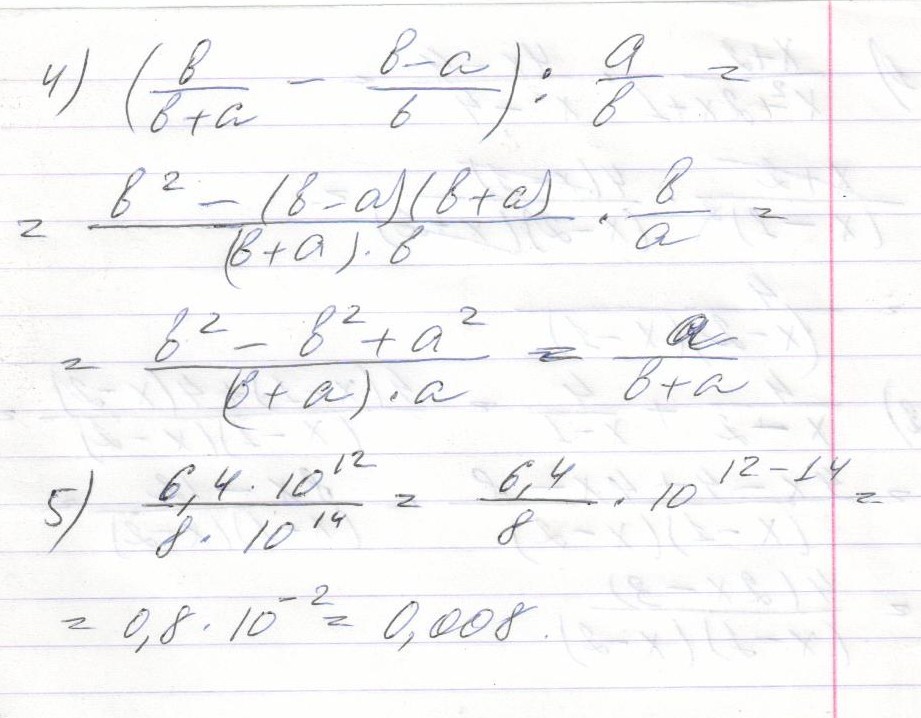 4) (b/(b+a) − (b−a)/b) : a/b =
= (b² − (b−a)(b+a))/((b+a)·b) · b/a =
= (b² − b² + a²)/((b+a)·a) = a/(b+a)
5) (6,4·10¹²)/(8·10¹⁴) = 6,4/8 · 10¹²⁻¹⁴ =
= 0,8·10⁻² = 0,008.